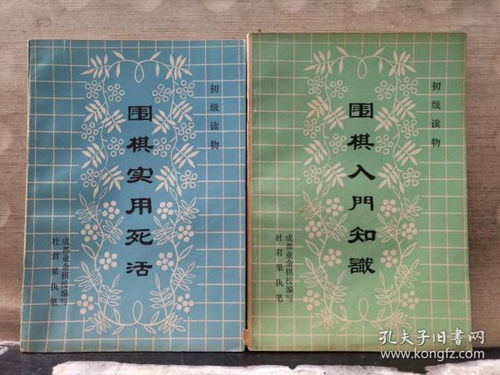 初级读物
围棋实用死活
成都业余棋校编写
杜君果执笔
初级读物
围棋入門知識
成都业余棋校编写
杜君果执笔
孔夫子旧书网
www.kongfz.com